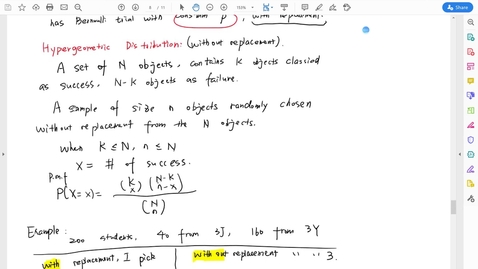 has Bernoulli trial with constant p, with replacement.
Hypergeometric Distribution: (without replacement).
A set of N objects, contains K objects classied
as success, N-K objects as failure.
A sample of size n objects randomly chosen
without replacement from the N objects.
When K ≤ N, n ≤ N
X = # of success.
p.m.f
P(X=x) = (K x) (N-K n-x) / (N n)
Example: 200 students, 40 from 3J, 160 from 3Y
with replacement, I pick | without replacement " " 3.